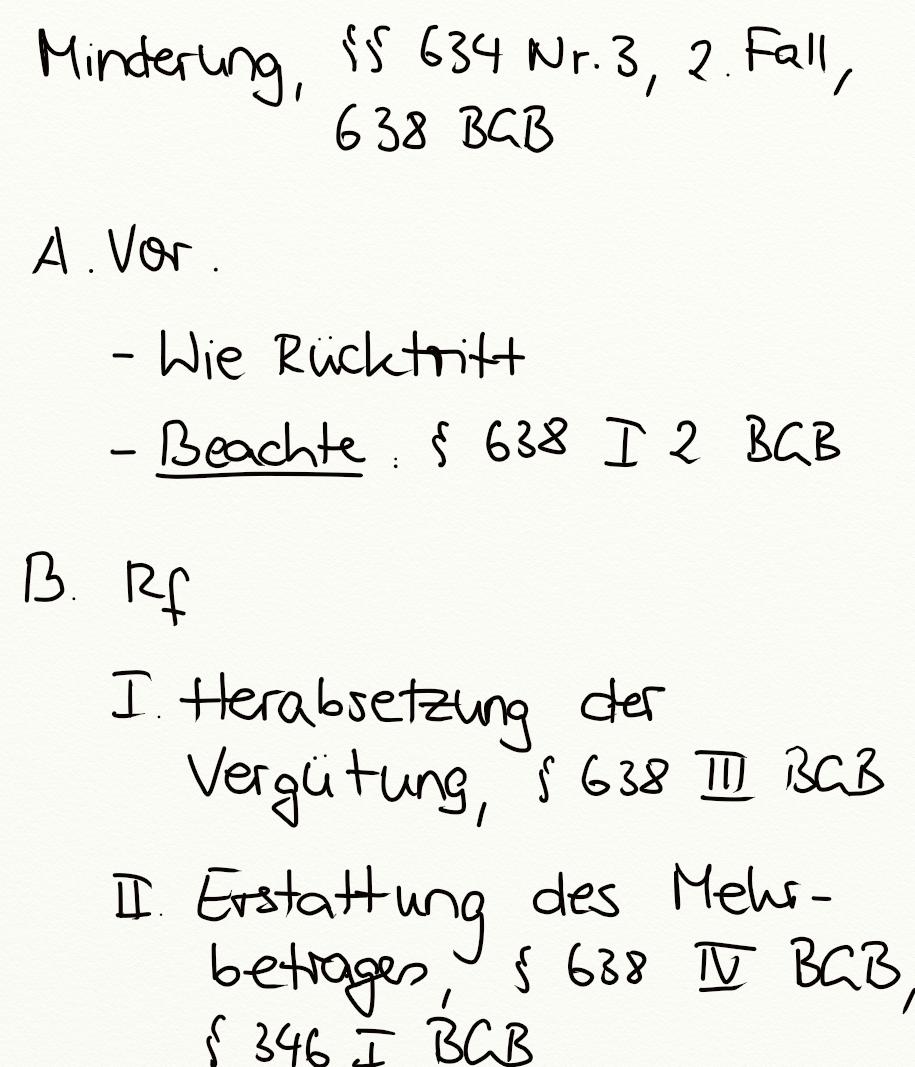 Minderung, §§ 634 Nr. 3, 2. Fall,
638 BGB
A. Vor.
- Wie Rücktritt
- Beachte: § 638 I 2 BGB
B. Rf
I. Herabsetzung der
Vergütung, § 638 III BGB
II. Erstattung des Mehr-
betrages, § 638 IV BGB,
§ 346 I BGB